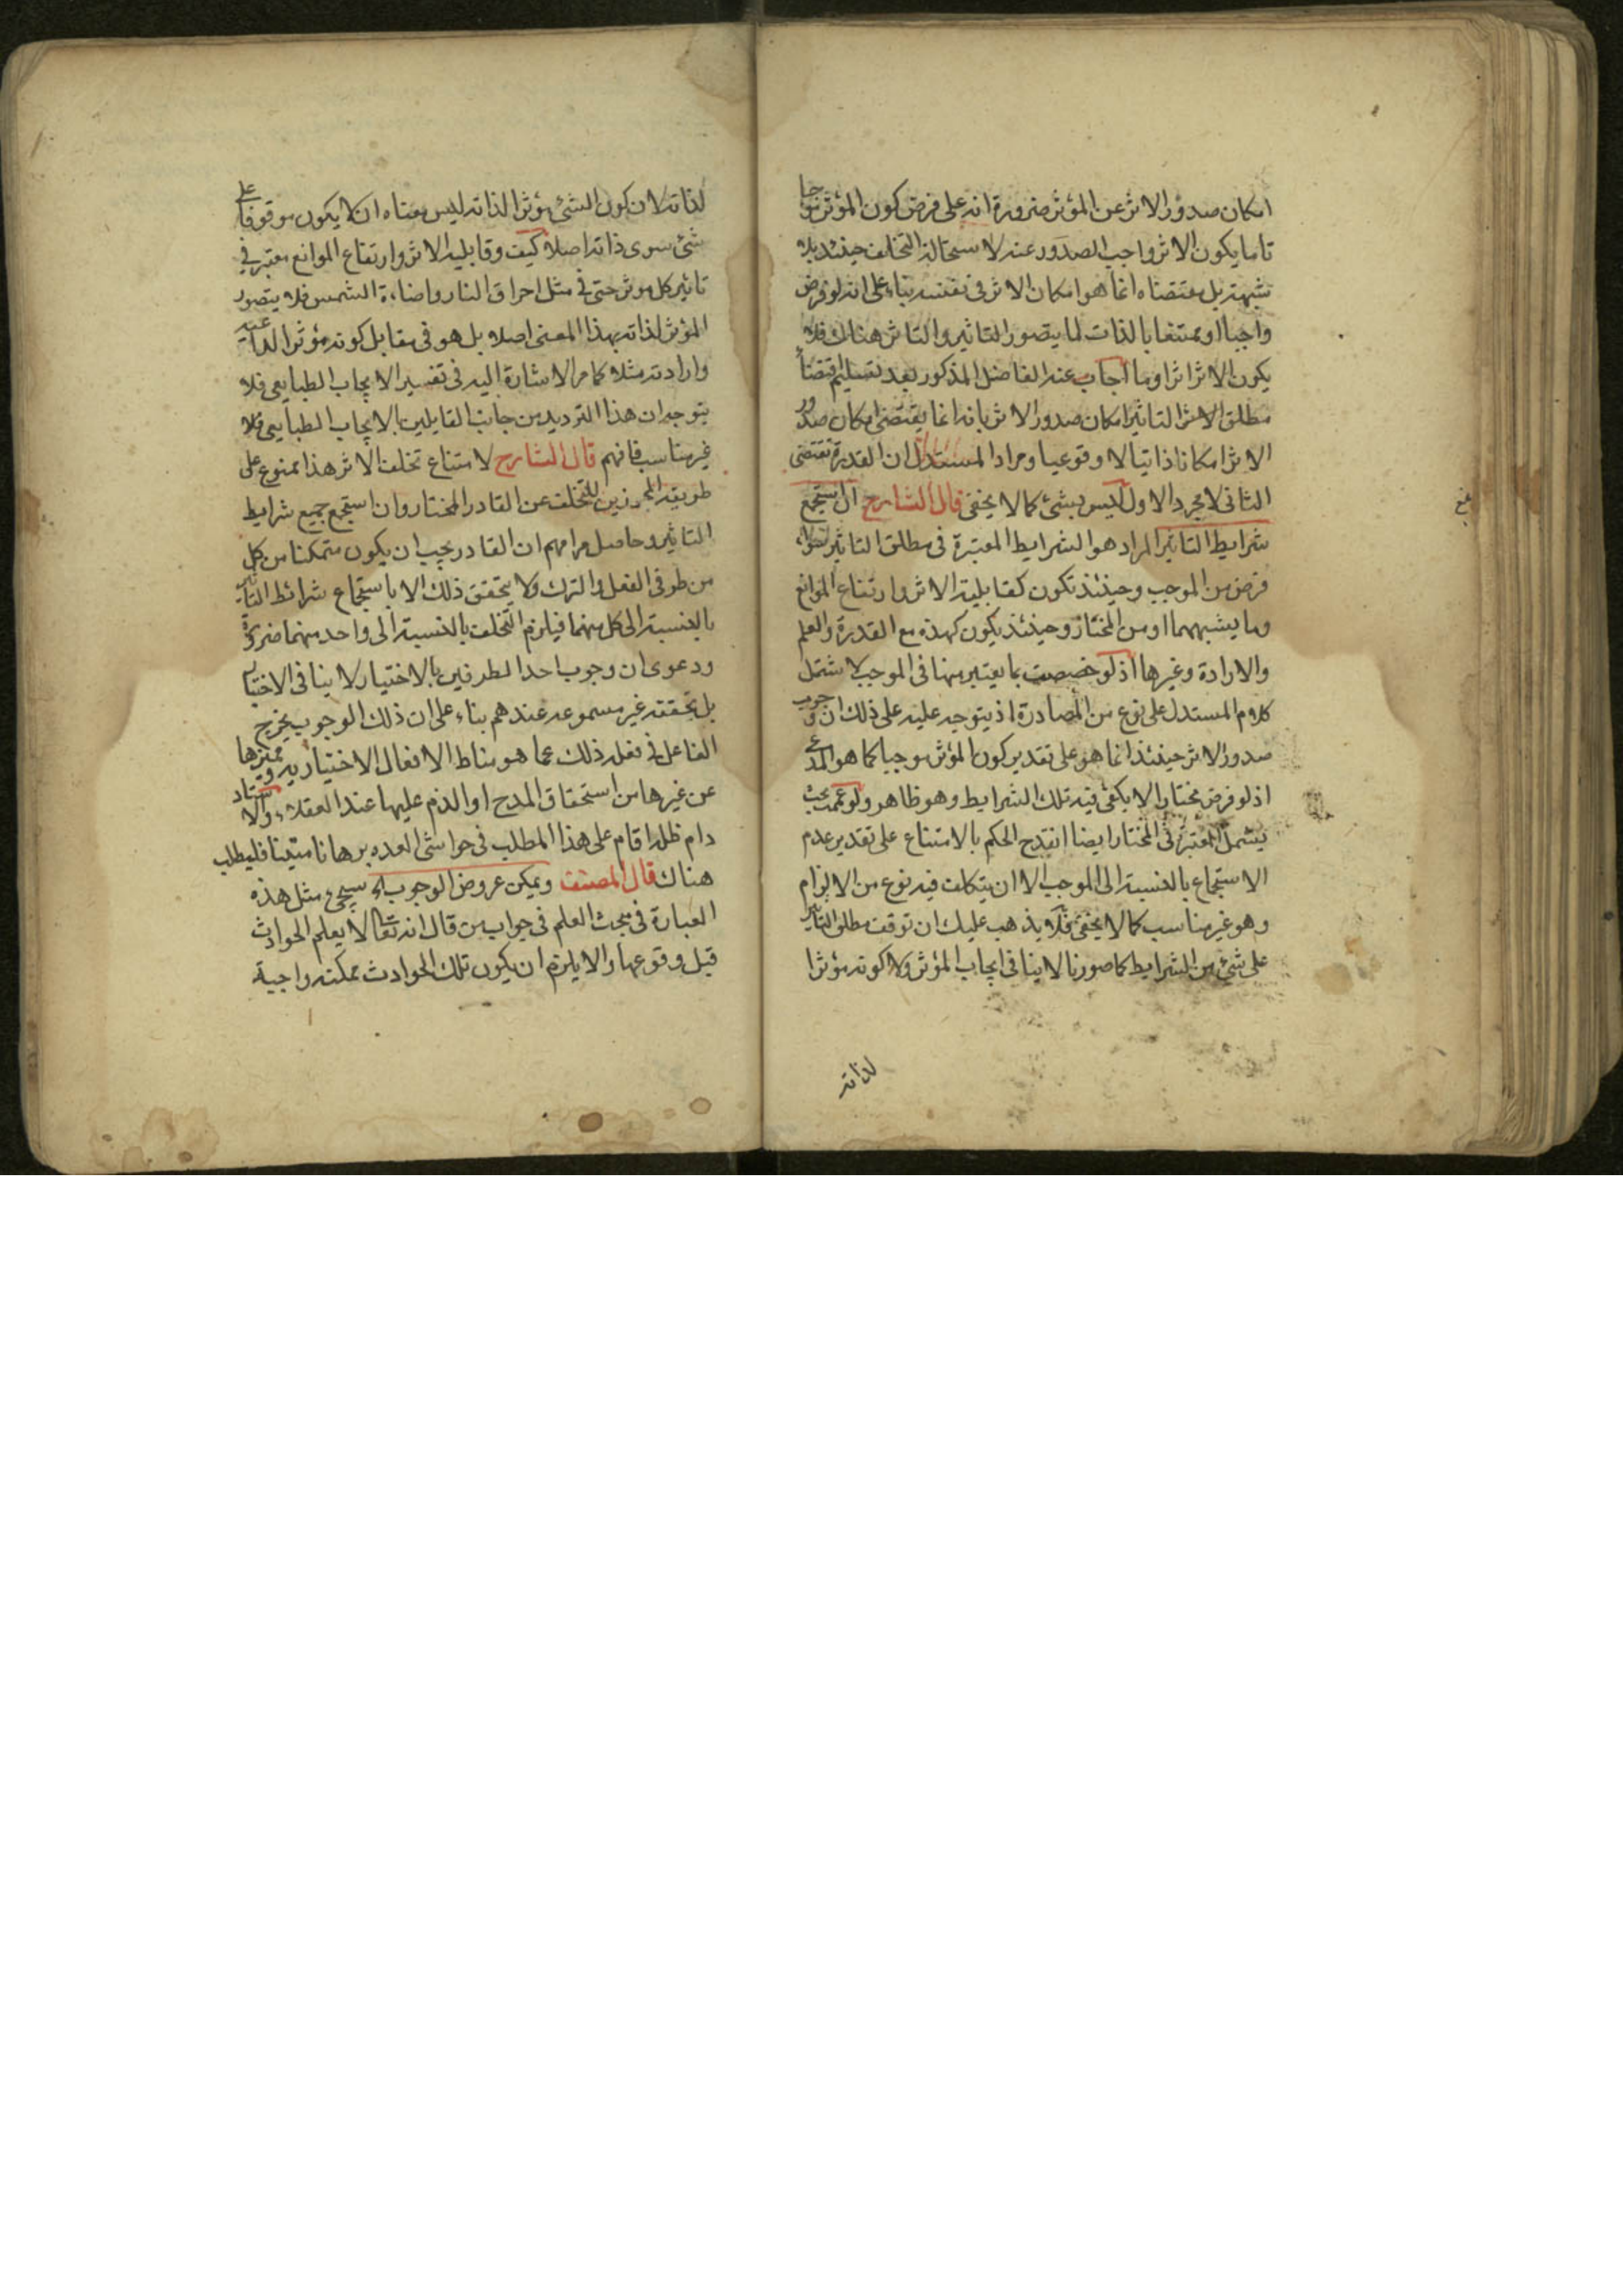 امكان صدور الاثر عن المؤثر ضرورة انه على فرض كون المؤثر موجبا
تاما يكون الاثر واجب الصدور عنه لاستحالة التخلف حينئذ بلا
شبهة بل مقتضاه انما هو امكان الاثر فى نفسه بناء على انه لو فرض
واجبا او ممتنعا بالذات لما يتصور التاثير والتاثر هناك فلا
يكون الاثر اثرا وما اجاب عنه الفاضل المذكور بعد تسليم اقتضاء
مطلق الاثر التاثير امكان صدور الاثر بانه انما يقتضى امكان صدور
الاثر امكانا ذاتيا لا وقوعيا ومراد المستدل ان القدرة تقتضى
الثانى لا مجرد الاول ليس بشئ كما لا يخفى قال الشارح ان استجمع
شرايط التاثير المراد هو الشرايط المعتبرة فى مطلق التاثير سواء
فرض من الموجب وحينئذ تكون كقابلية الاثر وارتفاع الموانع
وما يشبههما او من المختار وحينئذ يكون كهذه مع القدرة والعلم
والارادة وغيرها اذ لو خصصت بما يعتبر منها فى الموجب لاشتمل
كلام المستدل على نوع من المصادرة اذ يتوجه عليه على ذلك ان وجوب
صدور الاثر حينئذ انما هو على تقدير كون المؤثر موجبا كما هو المدعى
اذ لو فرض مختارا لا يكفى فيه تلك الشرايط وهو ظاهر ولو عممت بحيث
يشمل المعتبرة فى المختار ايضا انقدح الحكم بالامتناع على تقدير عدم
الاستجماع بالنسبة الى الموجب الا ان يتكلف فيه نوع من الالزام
وهو غير مناسب كما لا يخفى فلا يذهب عليك ان توقف مطلق التاثير
على شئ من الشرايط كما صورنا لا ينافى ايجاب المؤثر ولا كونه مؤثرا
لذاته
لذاته لان كون الشئ مؤثرا لذاته ليس معناه ان لا يكون موقوفا على
شئ سوى ذاته اصلا كيف وقابلية الاثر وارتفاع الموانع معتبر فى
تاثير كل موثر حتى فى مثل احراق النار واضاءة الشمس فلا يتصور
المؤثر لذاته بهذا المعنى اصلا بل هو فى مقابل كونه مؤثرا
وارادته مثلا كما مر الاشارة اليه فى تفسير الايجاب الطبايعى فلا
يتوجه ان هذا الترديد من جانب القايلين بالايجاب الطبايعى فلا
غير مناسب فافهم قال الشارح لامتناع تخلف الاثر هذا ممنوع على
طريقة المجوزين للتخلف عن القادر المختار وان استجمع جميع شرايط
التاثير وحاصل مرامهم ان القادر يجب ان يكون متمكنا من كل
من طرفى الفعل والترك ولا يتحقق ذلك الا باستجماع شرائط التاثير
بالنسبة الى كل منهما فيلزم التخلف بالنسبة الى واحد منهما ضرورة
ودعوى ان وجوب احد الطرفين بالاختيار لا ينافى الاختيار
بل يحققه غير مسموعه عندهم بناء على ان ذلك الوجوب يخرج
الفاعل فى فعله ذلك عما هو مناط الافعال الاختياريه ويميزها
عن غيرها من استحقاق المدح او الذم عليها عند العقلاء والاستاد
دام ظله اقام على هذا المطلب فى حواشى العده برهانا متينا فليطلب
هناك قال المصنف ويمكن عروض الوجوب اه سيجئ مثل هذه
العبارة فى مبحث العلم فى جواب من قال انه تعالى لا يعلم الحوادث
قبل وقوعها والا يلزم ان يكون تلك الحوادث ممكنه واجبة